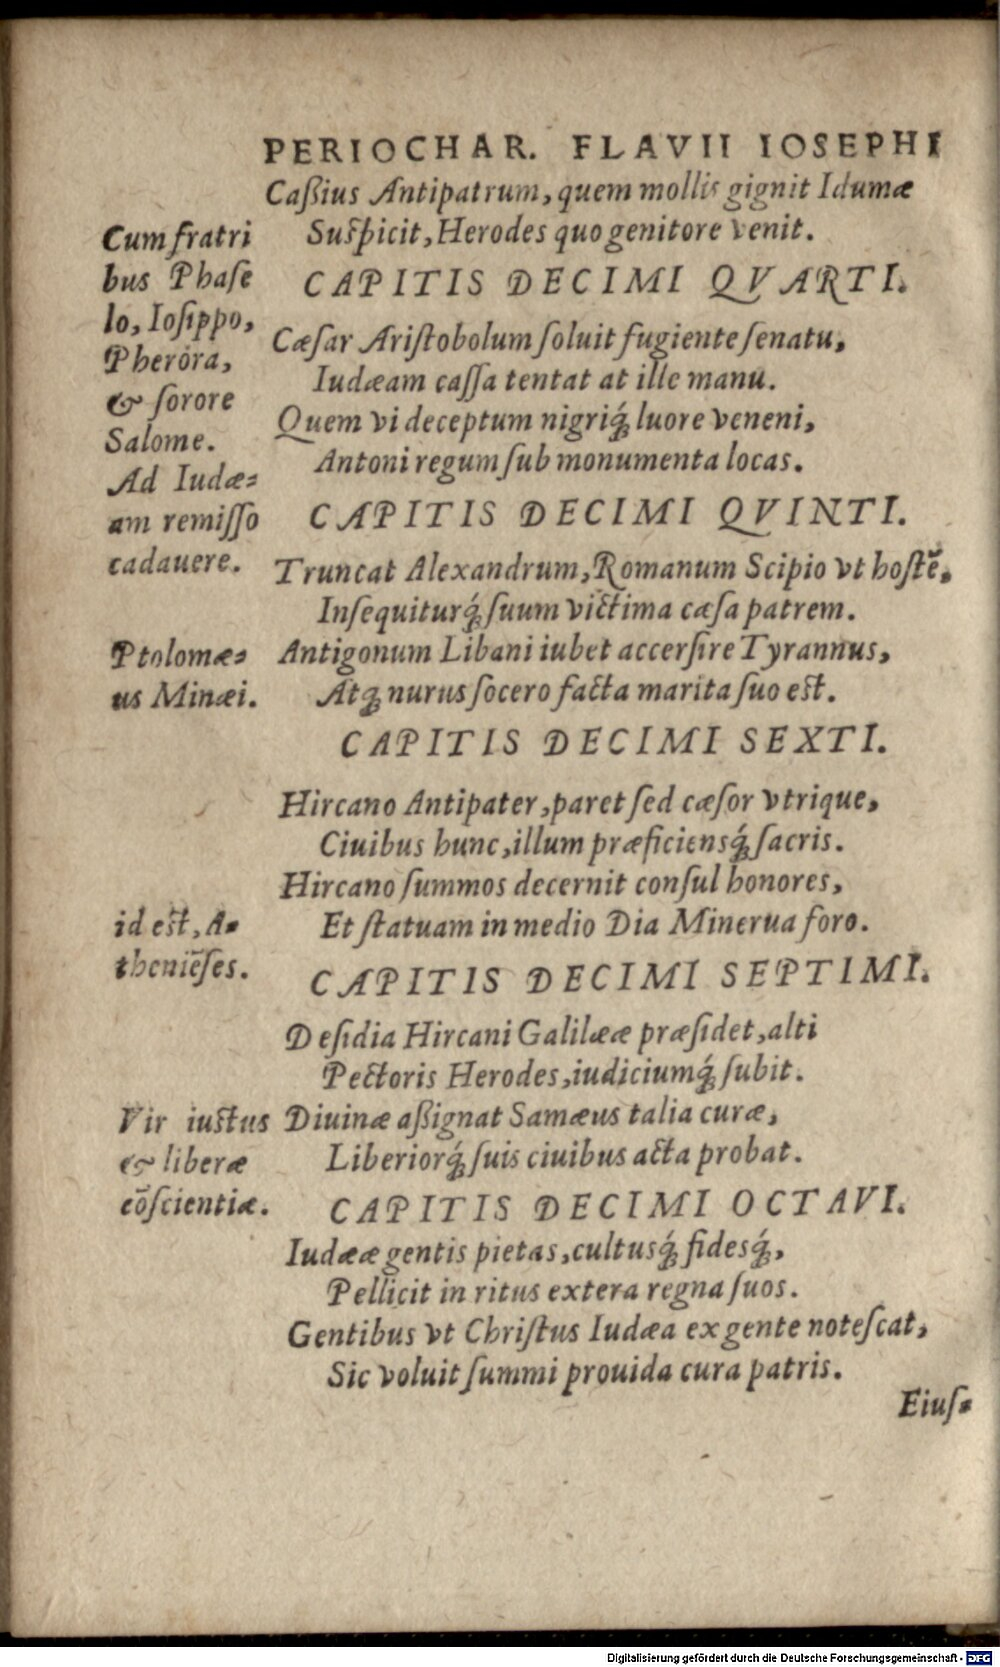 PERIOCHAR. FLAVII IOSEPHI
Caßius Antipatrum, quem mollis gignit Idumæ
Suspicit, Herodes quo genitore venit.
Cum fratri
bus Phaſe
lo, Ioſippo,
Pherora,
& ſorore
Salome.
CAPITIS DECIMI QVARTI.
Cæſar Ariſtobolum ſoluit fugiente ſenatu,
Iudæam caſſa tentat at ille manu.
Quem vi deceptum nigriq́; luore veneni,
Antoni regum ſub monumenta locas.
Ad Iudæ=
am remiſſo
cadauere.
CAPITIS DECIMI QVINTI.
Truncat Alexandrum, Romanum Scipio vt hoſtē,
Inſequiturq́; ſuum victima cæſa patrem.
Antigonum Libani iubet accerſire Tyrannus,
Atq; nurus ſocero facta marita ſuo est.
Ptolomæ=
us Minæi.
CAPITIS DECIMI SEXTI.
Hircano Antipater, paret ſed cæſor vtrique,
Ciuibus hunc, illum præficiensq́; ſacris.
Hircano ſummos decernit conſul honores,
Et ſtatuam in medio Dia Minerua foro.
id est, A=
theniēſes.
CAPITIS DECIMI SEPTIMI.
Deſidia Hircani Galilææ præſidet, alti
Pectoris Herodes, iudiciumq́; ſubit.
Diuinæ aßignat Samæus talia curæ,
Liberiorq́; ſuis ciuibus acta probat.
Vir iustus
& liberæ
cōſcientiæ.
CAPITIS DECIMI OCTAVI.
Iudææ gentis pietas, cultusq́; fidesq́;,
Pellicit in ritus extera regna ſuos.
Gentibus vt Chriſtus Iudæa ex gente noteſcat,
Sic voluit ſummi prouida cura patris.
Eiuſ=
Digitalisierung gefördert durch die Deutsche Forschungsgemeinschaft - DFG